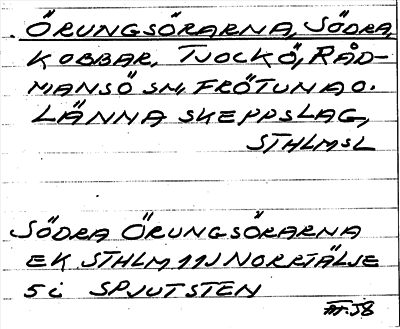 ÖRUNGSÖRARNA, SÖDRA,
KOBBAR, TJOCKÖ, RÅD-
MANSÖ SN, FRÖTUNA O.
LÄNNA SKEPPSLAG,
STHLMSL
SÖDRA ÖRUNGSÖRARNA
EK STHLM 11J NORRTÄLJE
5i SPJUTSTEN